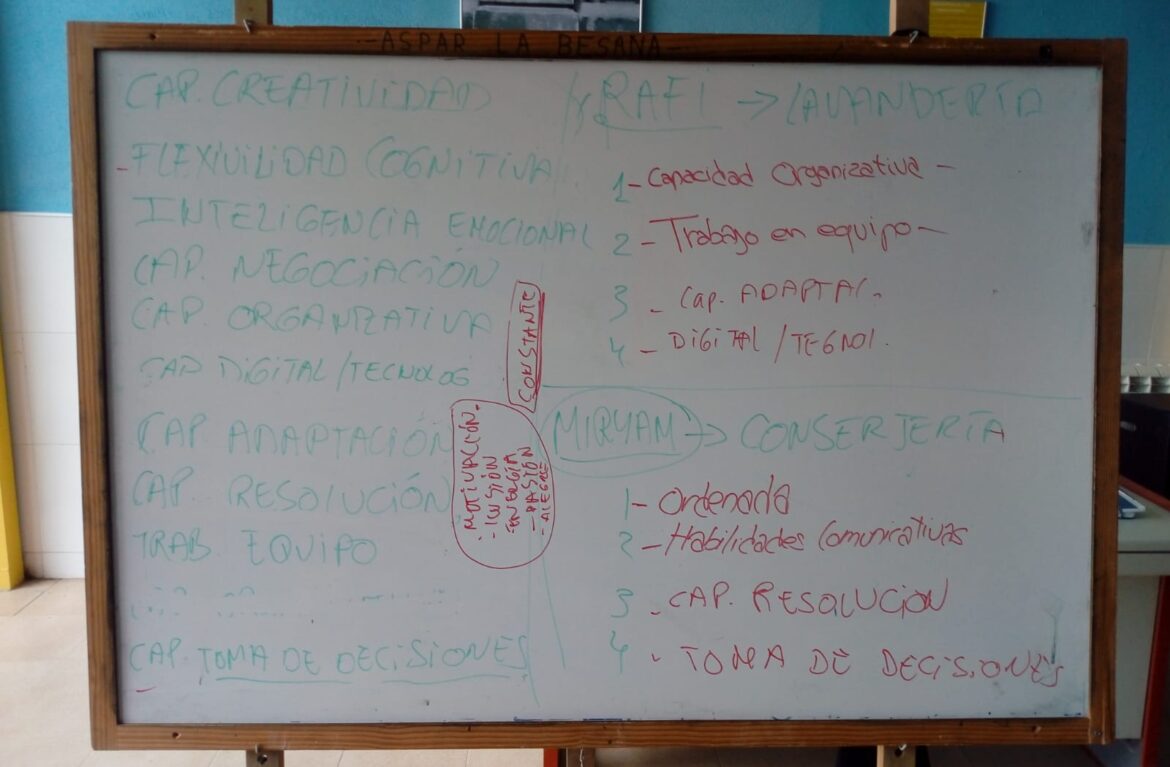 -ASPAR LA BESANA-
CAP. CREATIVIDAD
- FLEXIVILIDAD COGNITIVA
INTELIGENCIA EMOCIONAL
CAP. NEGOCIACIÓN
CAP. ORGANIZATIVA
CAP DIGITAL/TECNOLOG
CAP ADAPTACIÓN
CAP RESOLUCIÓN
TRAB. EQUIPO
CAP. TOMA DE DECISIONES
CONSTANTE
- MOTIVACIÓN.
- ILUSIÓN
ENERGÍA
- PASIÓN
- ALEGRE
RAFI → LAVANDERÍA
1- Capacidad Organizativa -
2 - Trabajo en equipo -
3 - Cap. ADAPTAC.
4 - DIGITAL / TEGNOL.
MIRYAM → CONSERJERÍA
1- Ordenada
2 - Habilidades Comunicativas
3 - CAP. RESOLUCIÓN
4 - TOMA DE DECISIONES